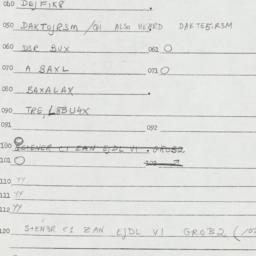 040 DEJFIK8
050 DAKTOJRSM /OH ALSO HEARD DAKTEE.RSM
060 DSR BUX 061 O
070 A BAXL 071 O
080 BAXALAX
090 TRE, L8BU4X
091 092
100 STENER C1 ZAN EJDL VI . GROB2
101 O 102
110 44
111 44
112 44
120 STENBR C1 ZAN EJDL VI GROB2 (